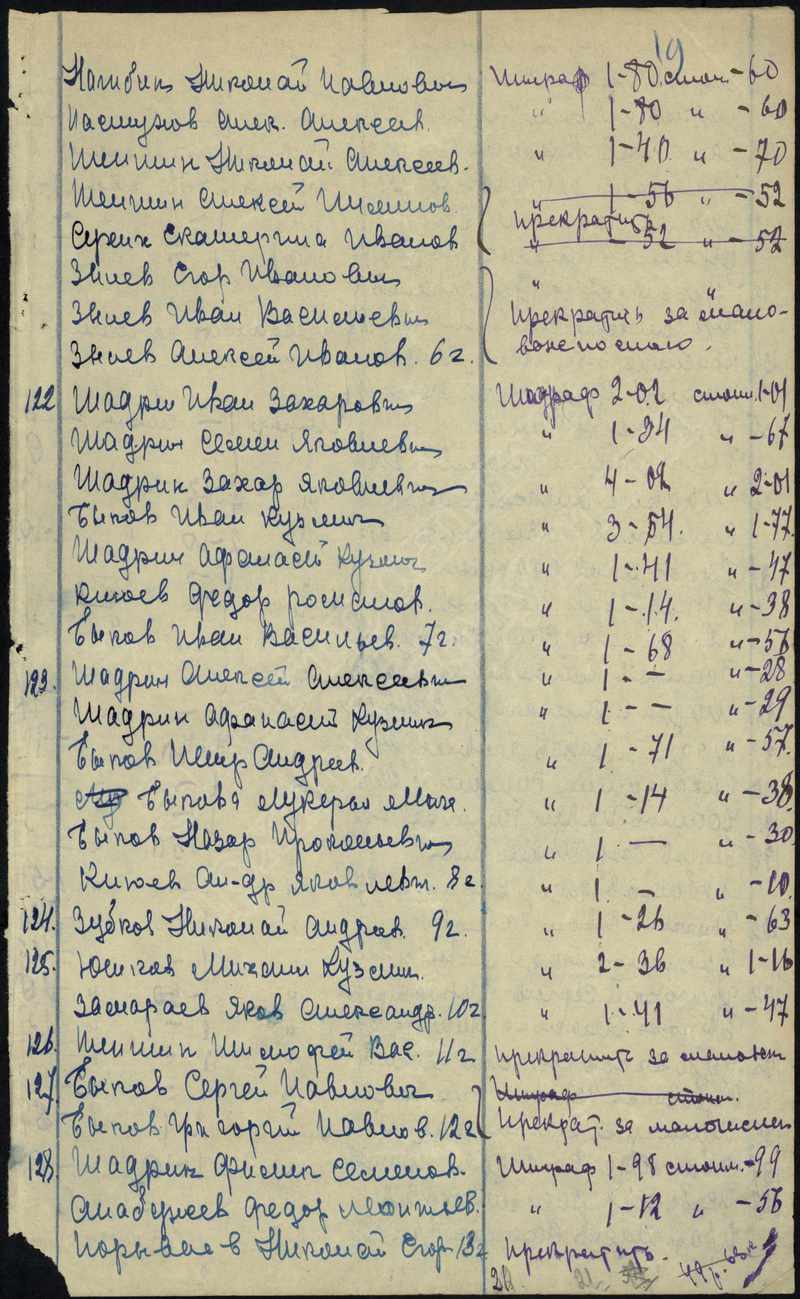 19
Нагибин Николай Павлович Штраф 1-80 стоим -60
Пастухов Алек. Алексеев. " 1-80 " -60
Шеишин Николай Алексеев. " 1-40 " -70
Шеишин Алексей " 1-56 " -52
Прекратить
Иванов " -52 " -52
Зыпев Егор Иванович "
Зыпев Иван Васильевич Прекратить за мало-
Зыпев Алексей Иванов. 6г.
122 Шадрин Иван Захарович Штраф 2-02 стоим. 1-01
Шадрин Семен Яковлевич " 1-34 " -67
Шадрин Захар Яковлевич " 4-02 " 2-01
Быков Иван Кузьмич " 3-54. " 1-77
Шадрин Афанасий Кузмич " 1-41 " -47
Клюев Федор " 1-14. " -38
Быков Иван Васильев. 7г. " 1-68 " -56
123. Шадрин Алексей Алексеевич " 1 - - " -28
Шадрин Афанасий Кузмич " 1 - - " -29
Быков Петр Андреев. " 1 -71 " -57
Быкова Лукерья " 1 -14 " -38.
Быков Назар Прокопьевич " 1 — " -30
Клюев Ал-др Яковлевич. 8г. " 1. - " -10.
124. Зубков Николай Андреев. 9г. " 1 -26 " -63
125. Михаил Кузмич. " 2-36 " 1-16
Замараев Яков Александр. 10г. " 1-41 " -47
126. Шеишин Тимофей Вас. 11г Прекратить за
127. Быков Сергей Павлович Штраф стоим.
Быков Григорий Павлов. 12г. Прекрат. за
128. Шадрин Филип Семенов. Штраф 1-98 стоим. -99
Федор Леонтьев. " 1-12 " -56
Николай Егор 13г. Прекратить.